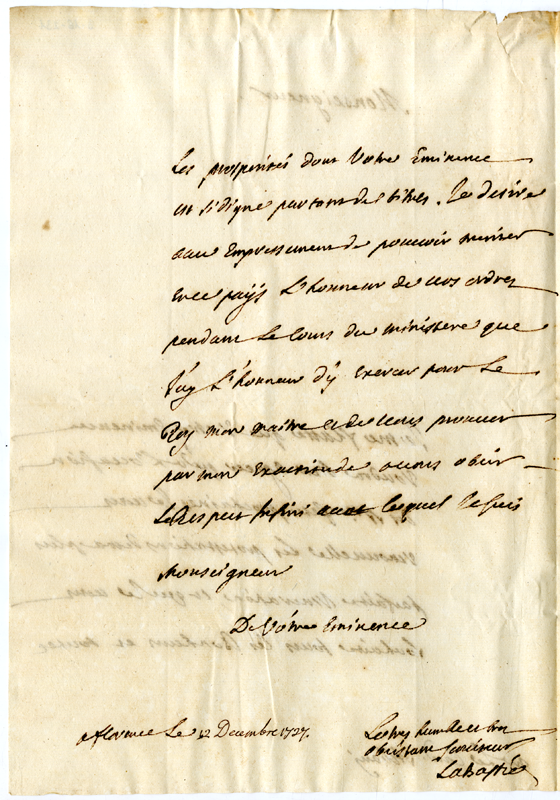 Les prosperités dont Votre Eminence
est si digne par tant de titres. Je desire
avec Empressement de pouvoir meriter
En ce paÿs L'honneur de vos ordres
pendant Le Cours du ministere que
J'ay L'honneur d'ÿ Exercer pour Le
Roy mon maitre et de vous prouver
par mon Exactitude a vous obeir
Le Respect Infini avec Lequel Je suis
Monseigneur
De Vôtre Eminence
a florence Le 12 Decembre 1727.
Le tres humble et tres
obeissant serviteur
LaBastie
Monseigneur